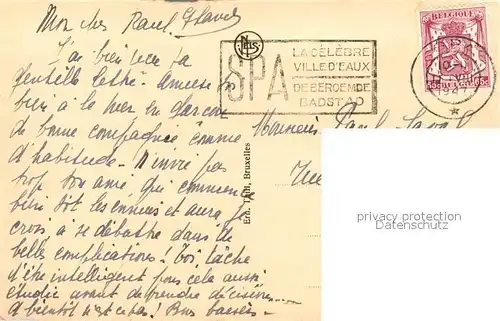 Mon cher Raoul,
J'ai bien reçu ta
gentille lettre. Amuse
bien à la mer en garçon
de bonne compagnie, comme
d'habitude. N'envie pas
trop ton ami, qui commence
bien tôt les ennuis et aura je
crois à se débattre dans de
belles complications! Toi, tâche
d'être intelligent pour cela aussi
étudie avant de prendre décisions
A bientôt Bons baisers
Nels
SPA
LA CÉLÈBRE
VILLE D'EAUX
DE BEROEMDE
BADSTAD
BELGIQUE
65c BELGIE 65c
SPA
Monsieur
Ern. Thill, Bruxelles
privacy protection
Datenschutz